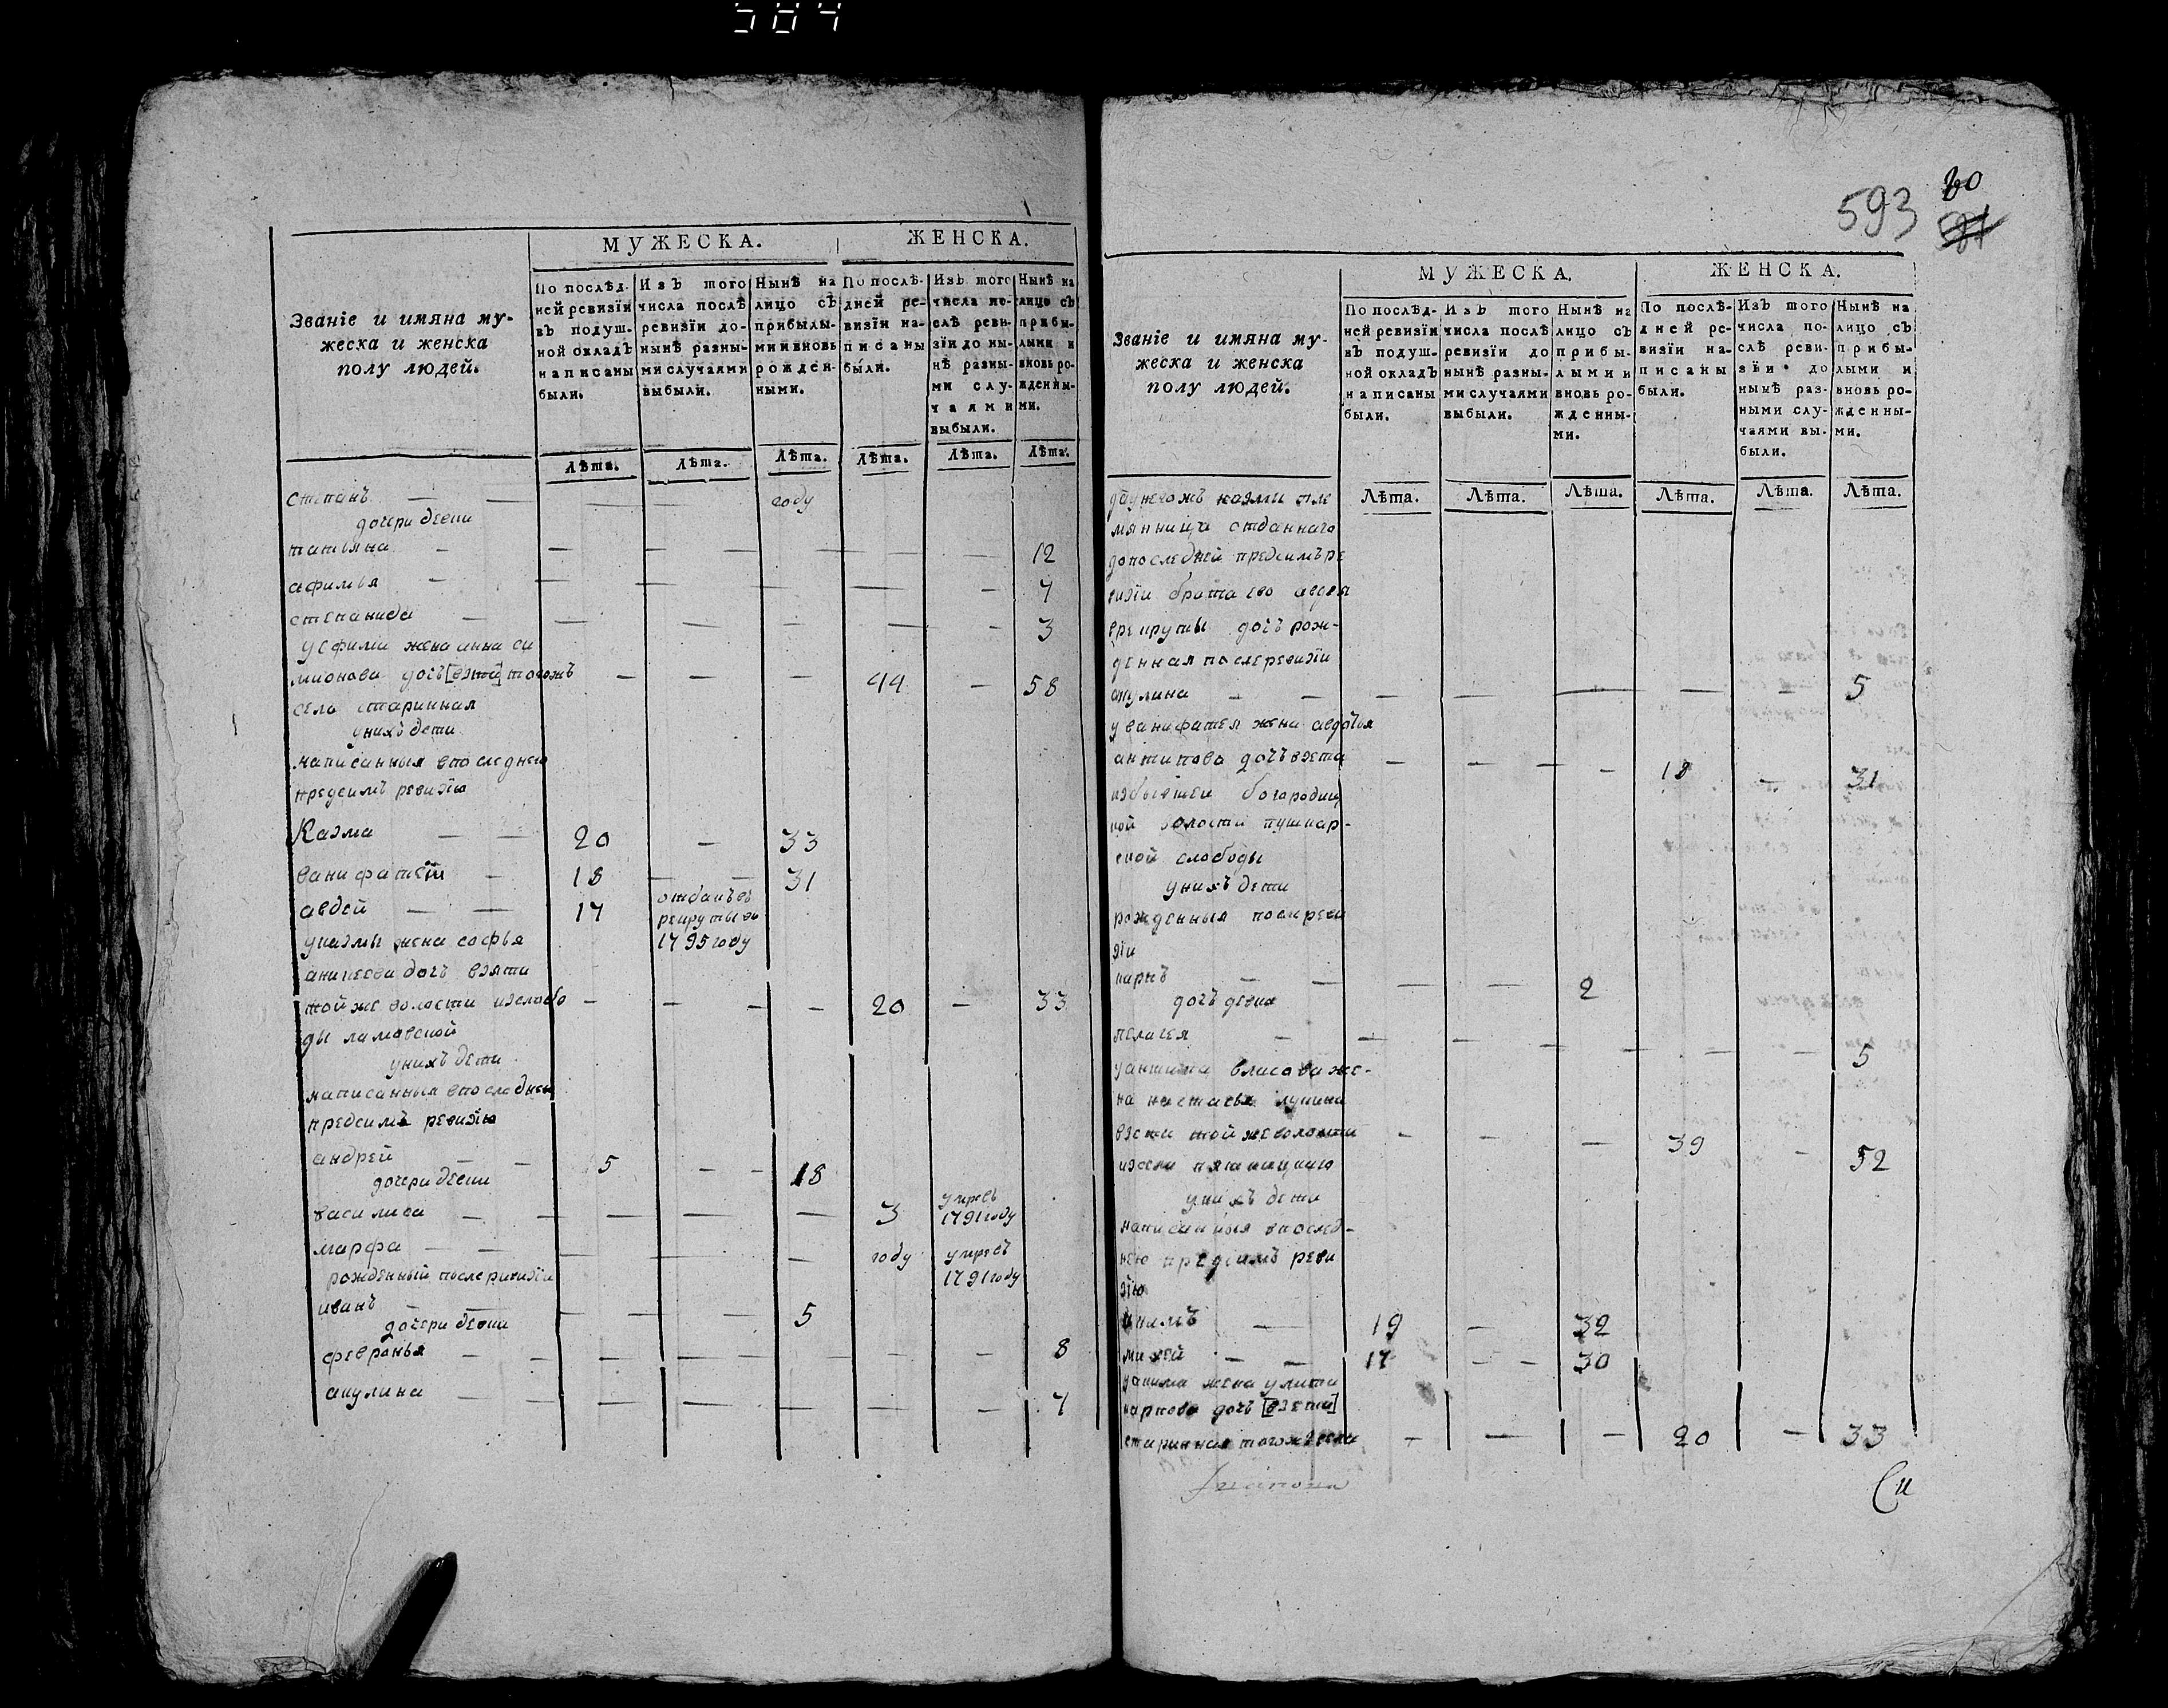 584
МУЖЕСКА. ЖЕНСКА.
Званїе и имяна му-
жеска и женска
полу людей.
По послѣд-
ней ревизїи
въ подуш-
ной окладъ
написаны
были.
Изъ того
числа послѣ
ревизїи до-
нынѣ разны-
ми случаями
выбыли.
Нынѣ на
лицо съ
прибылы-
ми и вновь
рожден-
ными.
По послѣ-
дней ре-
визїи на-
писаны
были.
Изъ того
числа по-
слѣ реви-
зїи до ны-
нѣ разны-
ми слу-
чаями
выбыли.
Нынѣ на
лицо съ
прибы-
лыми и
вновь ро-
жденны-
ми.
Лѣта. Лѣта. Лѣта. Лѣта. Лѣта. Лѣта.
степанъ — — — году
дочери девки
татьяна — — — — — — 12
афимья — — — — — — 7
степанида — — — — — — 3
у ефима жена анна си
мионова дочь [взята] тогожъ — — — 44 — 58
села старинная
унихъ дети
написанныя впоследнею
предсимъ ревизїю
Казма — — 20 — 33
ванифатей — 18 — — 31
авдей — — 17 отданъ въ
рекруты въ
1795 году
указмы жена софья
аникеева дочь взята
тойже волости изслобо — — — — 20 — 33
ды ламовской
унихъ дети
написанныя впоследнею
предсимъ ревизїю
андрей — — 5 — — 18
дочери девки
василиса — — — — — 3 умре въ
1791 году
марфа — — — — — году умре въ
1791 году
рожденный после ревизїи
иванъ — — — — — 5
дочери девки
февронья — — — — — — — — 8
акулина — — — — — — — 7
593 60
МУЖЕСКА. ЖЕНСКА.
Званїе и имяна му-
жеска и женска
полу людей.
По послѣд-
ней ревизїи
въ подуш-
ной окладъ
написаны
были.
Изъ того
числа послѣ
ревизїи до
нынѣ разны-
ми случаями
выбыли.
Нынѣ на
лицо съ
прибы-
лыми и
вновь ро-
жденны-
ми.
По послѣ-
дней ре-
визїи на-
писаны
были.
Изъ того
числа по-
слѣ реви-
зїи до
нынѣ раз-
ными слу-
чаями вы-
были.
Нынѣ на
лицо съ
прибы-
лыми и
вновь ро-
жденны-
ми.
Лѣта. Лѣта. Лѣта. Лѣта. Лѣта. Лѣта.
казмы пле
мянница отданнаго
допоследней предсимъ ре
визїи брата его авдея
врекруты дочь рож-
денная послеревизїи
акулина — — — — — — — 5
у ванифатея жена авдотья
антипова дочь взята — — — — 18 — 31
избывшей богородиц
кой волости пушкар-
ской слободы
унихъ дети
рожденныя послереви
зїи
карпъ — — — — 2
дочь девка
пелагея — — — — — — — 5
уантипа власова же-
на настасья лукина
взята тойже волости — — — 39 — 52
изсела пятницкаго
унихъ дети
написанныя впослед-
нею предсимъ реви
зїю
акимъ — 19 — 32
михей — — 17 — — 30
уакима жена улита
карпова дочь [взята]
старинная тогожъ села — — — 20 — 33
Си